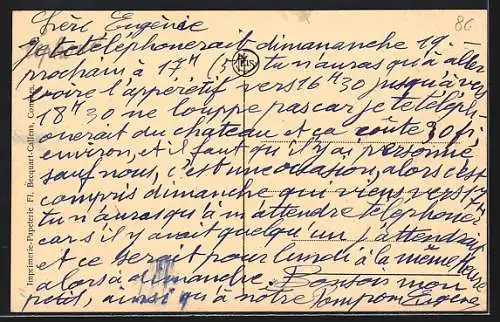 86
Chère Eugénie
je te téléphonerait dimananche 19 -
prochain à 17H (5 tu n'auras qu'à aller
voire l'appéretif vers 16H30 jusqu'à vers
18H30 ne louppe pas car je téléph-
onerait du chateau et ça coûte 30 fr
environ, et il faut qu'il y ai personne
sauf nous, c'est une occasion, alors c'est
compris dimanche qui viens vers 17H
tu n'auras qu'à m'attendre téléphoner
car s'il y avait quelqu'un j'attendrai
et ce serait pour lundi à la même heure
alors à dimandre. Bonsois mon
petit, ainsi qu'à notre Pompom Eugène
Imprimerie-Papeterie Fl. Becquart-Callens, Comines